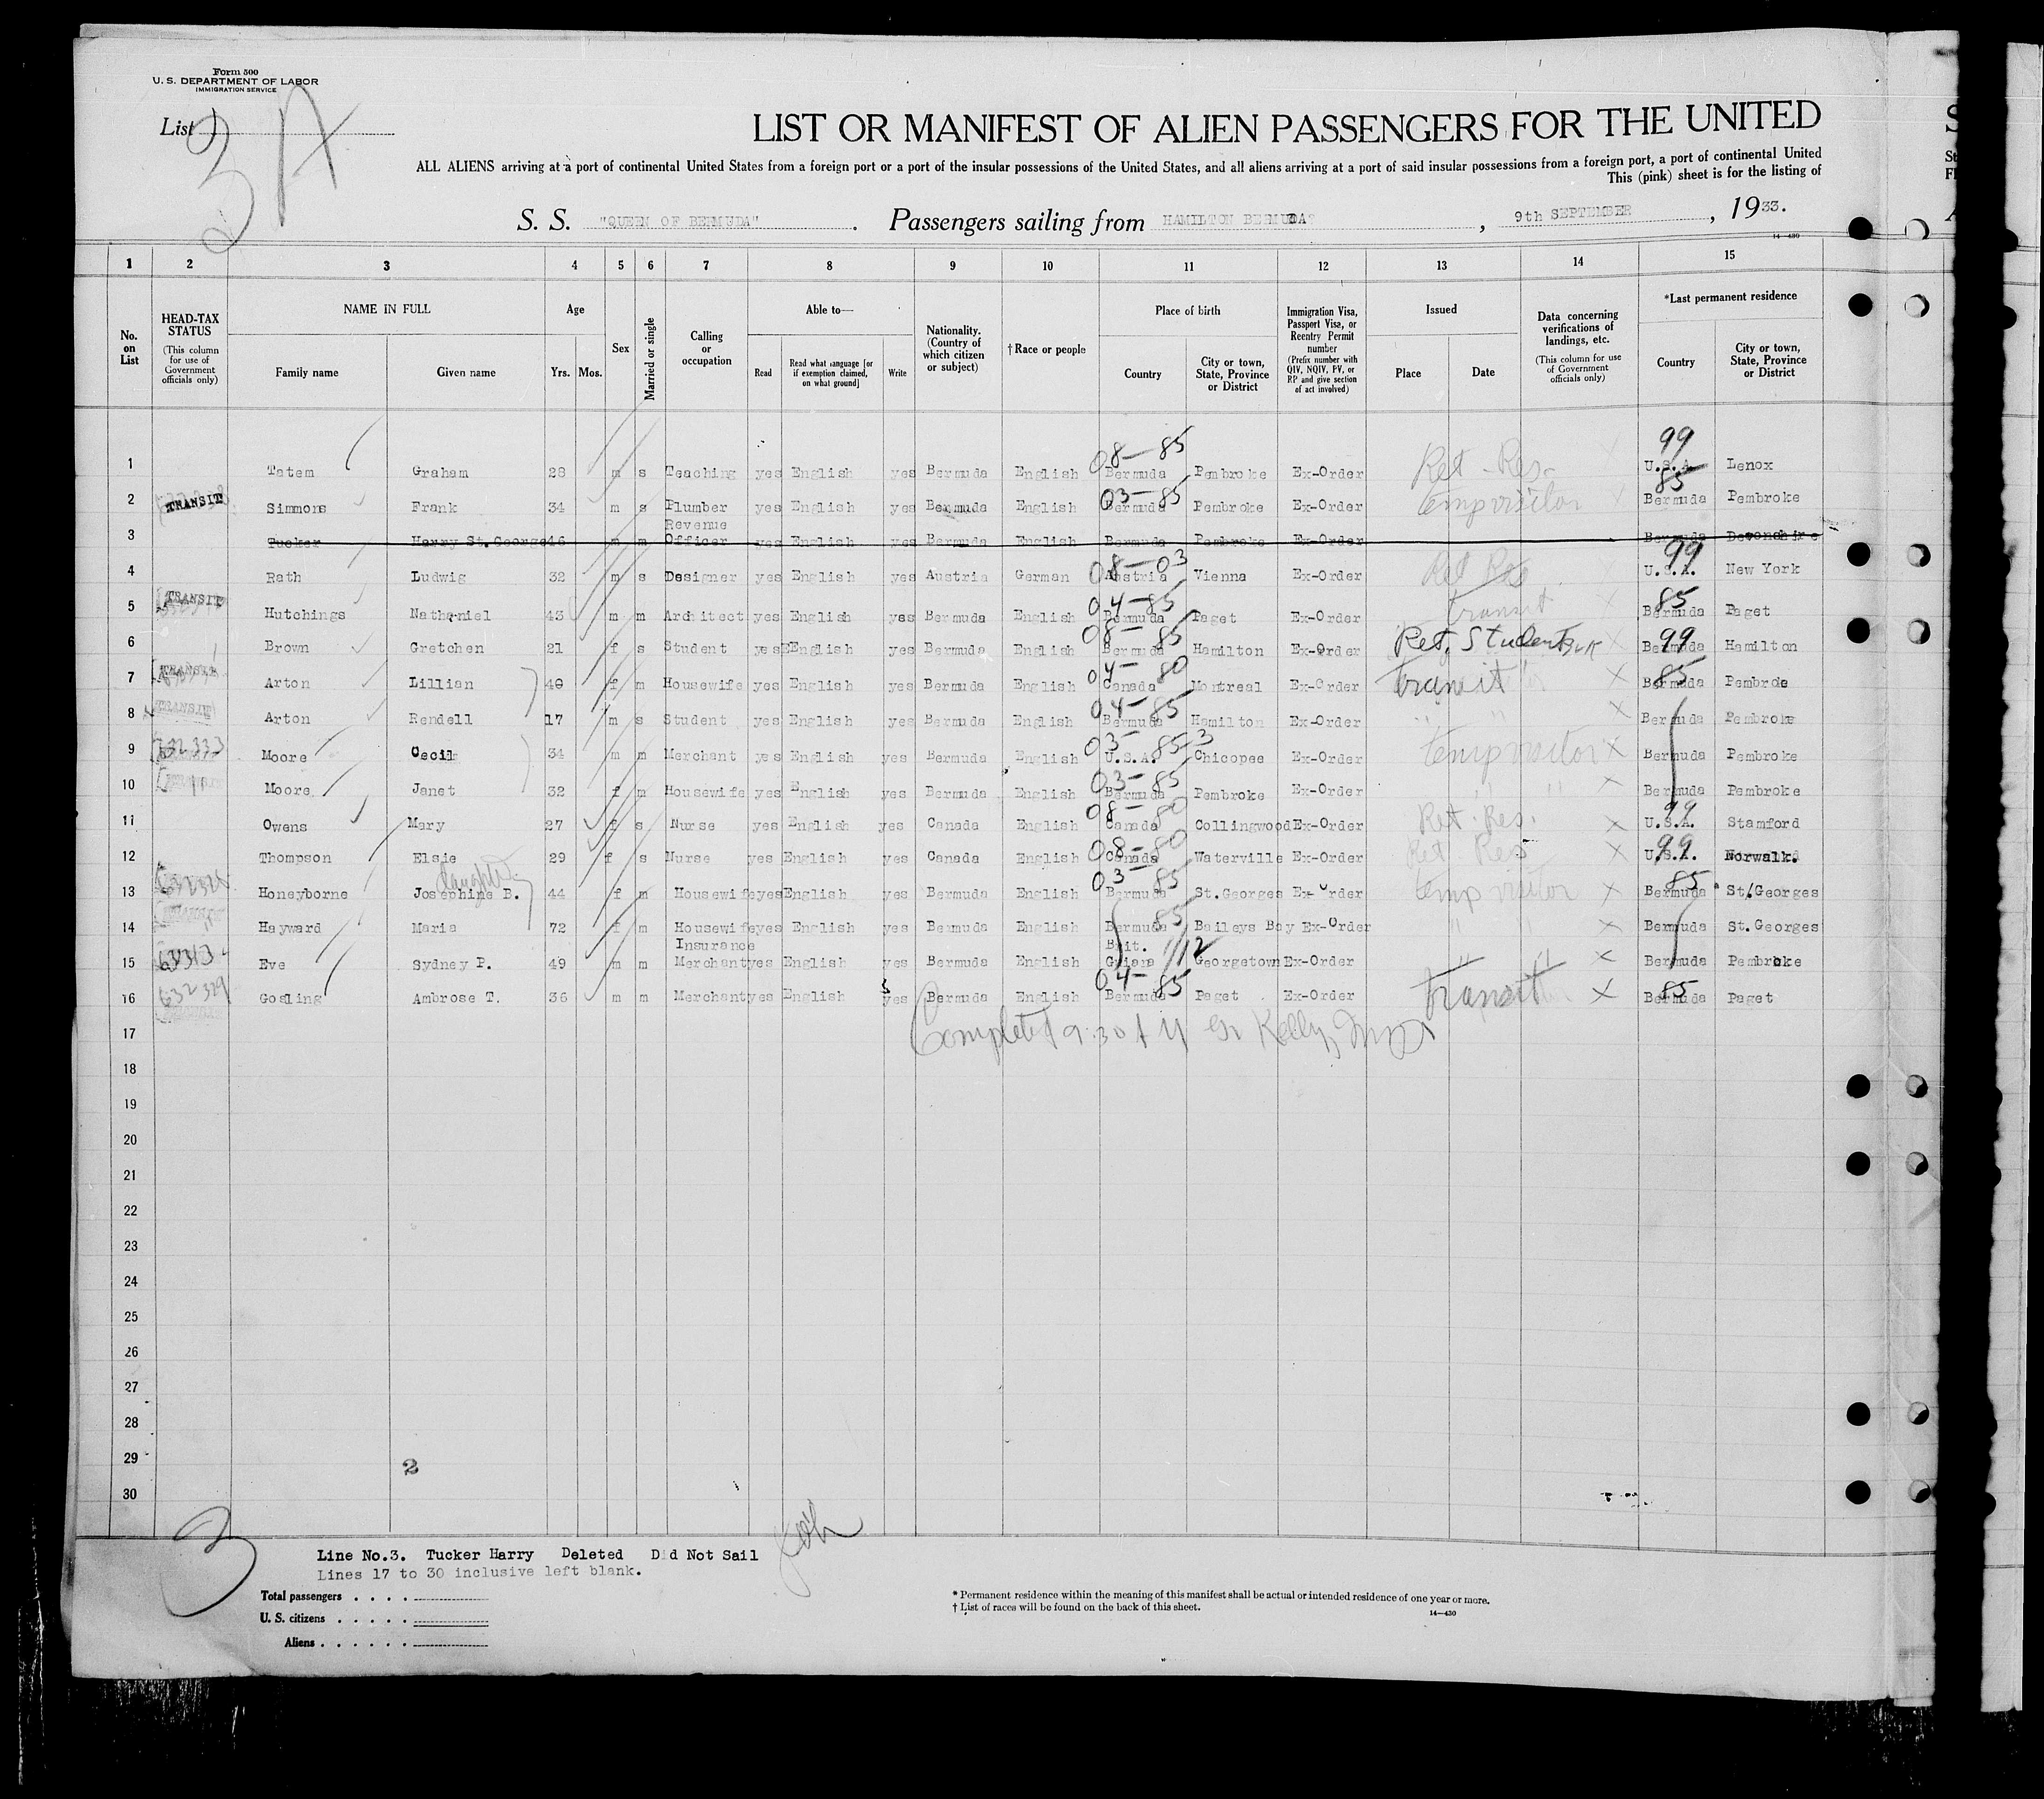 Form 500
U. S. DEPARTMENT OF LABOR
IMMIGRATION SERVICE
List 3 A
LIST OR MANIFEST OF ALIEN PASSENGERS FOR THE UNITED
ALL ALIENS arriving at a port of continental United States from a foreign port or a port of the insular possessions of the United States, and all aliens arriving at a port of said insular possessions from a foreign port, a port of continental United
This (pink) sheet is for the listing of
S. S. "QUEEN OF BERMUDA". Passengers sailing from HAMILTON BERMUDA, 9th SEPTEMBER, 1933.
14—430
1 2 3 4 5 6 7 8 9 10 11 12 13 14 15
No. on List
HEAD-TAX STATUS (This column for use of Government officials only)
NAME IN FULL Family name Given name
Age Yrs. Mos.
Sex
Married or single
Calling or occupation
Able to— Read Read what language [or if exemption claimed, on what ground] Write
Nationality. (Country of which citizen or subject)
† Race or people
Place of birth Country City or town, State, Province or District
Immigration Visa, Passport Visa, or Reentry Permit number (Prefix number with QIV, NQIV, PV, or RP and give section of act involved)
Issued Place Date
Data concerning verifications of landings, etc. (This column for use of Government officials only)
*Last permanent residence Country City or town, State, Province or District
1 Tatem Graham 28 m s Teaching yes English yes Bermuda English 08-85 Bermuda Pembroke Ex-Order Ret-Res. 99 U.S.A. Lenox
2 TRANSIT Simmons Frank 34 m s Plumber yes English yes Bermuda English 03-85 Bermuda Pembroke Ex-Order temp visitor 85 Bermuda Pembroke
3 Tucker Harry St.George 46 m m Revenue Officer yes English yes Bermuda English Bermuda Pembroke Ex-Order Bermuda Devonshire
4 Rath Ludwig 32 m s Designer yes English yes Austria German 08-03 Austria Vienna Ex-Order Ret Res 99 U.S.A. New York
5 TRANSIT Hutchings Nathaniel 43 m m Architect yes English yes Bermuda English 04-85 Bermuda Paget Ex-Order transit 85 Bermuda Paget
6 Brown Gretchen 21 f s Student yes English yes Bermuda English 08-85 Bermuda Hamilton Ex-Order Ret. Student 99 Bermuda Hamilton
7 TRANSIT Arton Lillian 40 f m Housewife yes English yes Bermuda English 04-80 Canada Montreal Ex-Order Transit 85 Bermuda Pembroe
8 TRANSIT Arton Rendell 17 m s Student yes English yes Bermuda English 04-85 Bermuda Hamilton Ex-Order " " Bermuda Pembroke
9 632333 Moore Cecil 34 m m Merchant yes English yes Bermuda English 03-85-3 U.S.A. Chicopee Ex-Order temp visitor X Bermuda Pembroke
10 Moore Janet 32 f m Housewife yes English yes Bermuda English 03-85 Bermuda Pembroke Ex-Order " " X Bermuda Pembroke
11 Owens Mary 27 f s Nurse yes English yes Canada English 08-80 Canada Collingwood Ex-Order Ret-Res. X 99 U.S.A. Stamford
12 Thompson Elsie 29 f s Nurse yes English yes Canada English 08-80 Canada Waterville Ex-Order Ret Res X 99 U.S.A. Norwalk.
13 Honeyborne daughter Josephine B. 44 f m Housewife yes English yes Bermuda English 03-85 Bermuda St.Georges Ex-Order temp visitor X 85 Bermuda St.Georges
14 Hayward Maria 72 f m Housewife yes English yes Bermuda English 85 Bermuda Baileys Bay Ex-Order " " X Bermuda St.Georges
15 Eve Sydney P. 49 m m Insurance Merchant yes English yes Bermuda English Brit. Guiana Georgetown Ex-Order " " X Bermuda Pembroke
16 632329 Gosling Ambrose T. 36 m m Merchant yes English yes Bermuda English 04-85 Bermuda Paget Ex-Order Transit X 85 Bermuda Paget
17 Completed 9:30 Kelly
18
19
20
21
22
23
24
25
26
27
28
29 2
30
3
Line No.3. Tucker Harry Deleted Did Not Sail
Lines 17 to 30 inclusive left blank.
Total passengers . . . .
U. S. citizens . . . . .
Aliens . . . . . .
* Permanent residence within the meaning of this manifest shall be actual or intended residence of one year or more.
† List of races will be found on the back of this sheet.
14—430